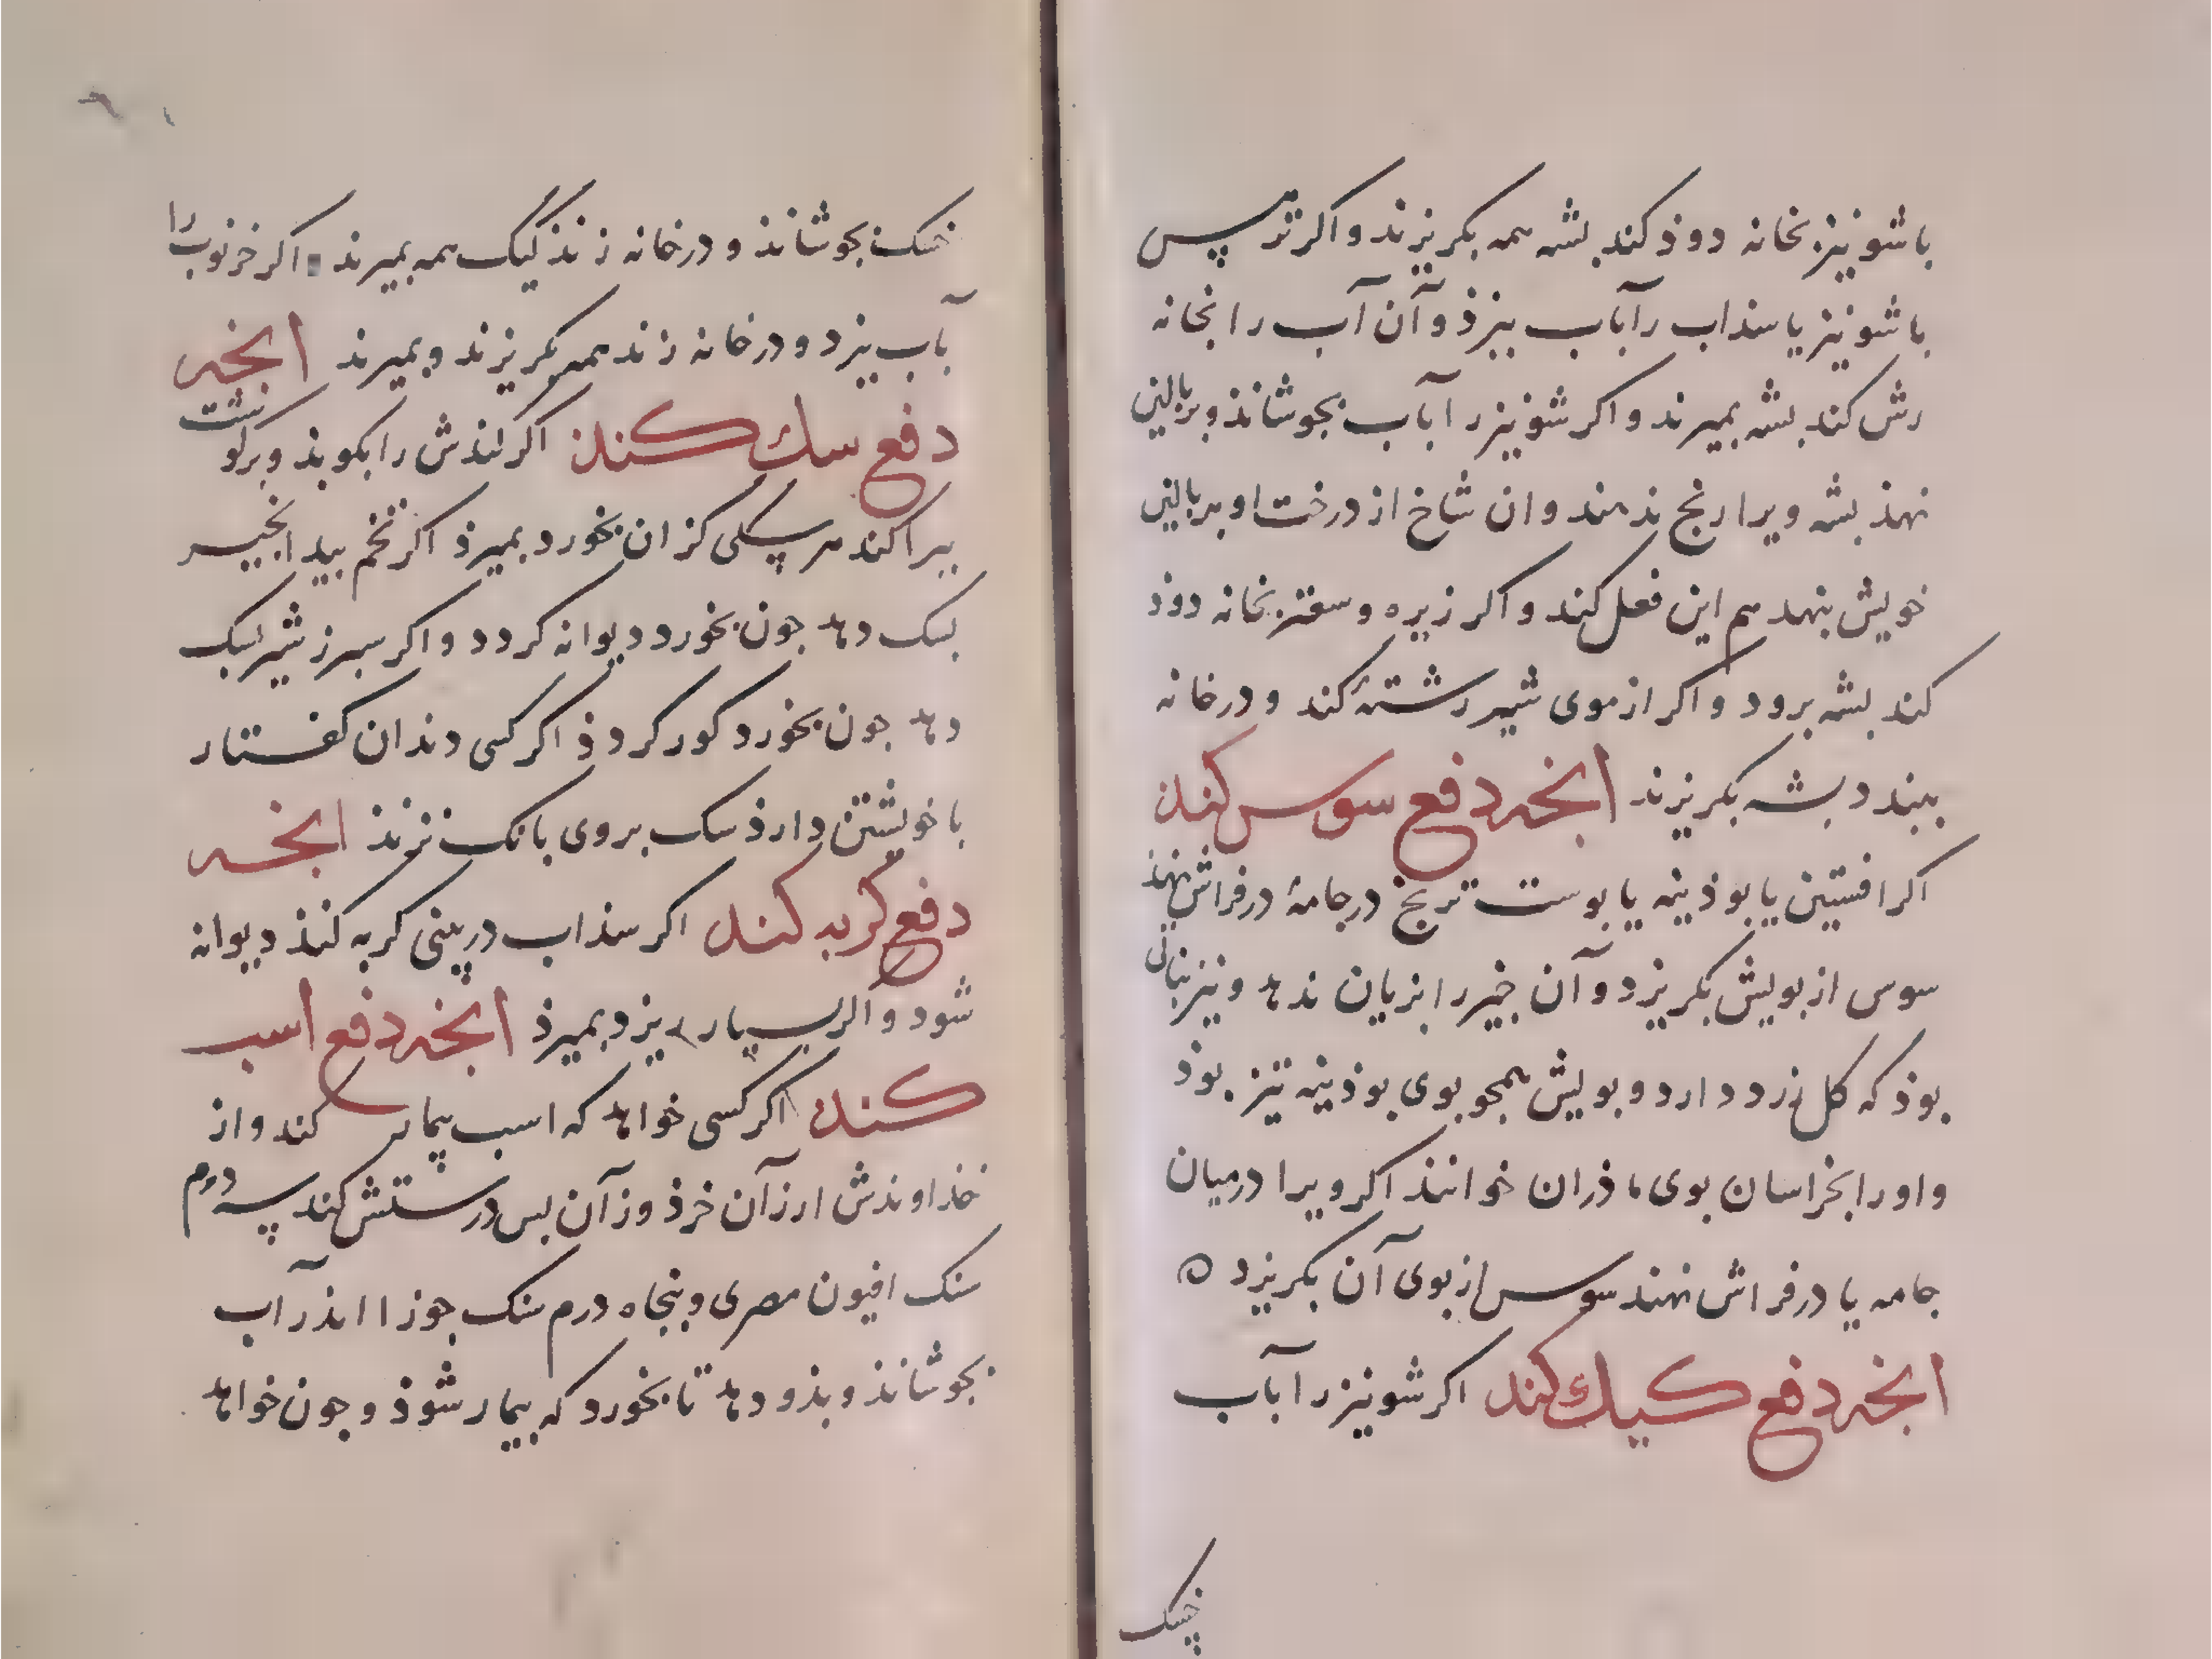 باشونیز بخانه دوذ کند بشه همه بکریزند و اکر ترمس
باشونیز یا سذاب رآباب بپزذ وآن آب را بخانه
رش کند بشه بمیرند و اکر شونیز را آباب بجوشانذ و بر بالین
نهذ بشه ویرا رنج ندهند وان شاخ از درخت او بر بالین
خویش بنهد هم این فعل کند و اکر زیره و سعتر بخانه دوذ
کند بشه برود و اکر از موی شیر رشتهٔ کند و درخانه
ببندد بشه بکریزند انجه دفع سوس کند
اکر افسنتین یا بوذینه یا بوست ترنج در جامهٔ در فراش نهذ
سوس از بویش بکریزد و آن جیز را بزیان ندهد و نیز نباتی
بوذ که کل زرد دارد و بویش همجو بوی بوذینه تیز بوذ
و او را بخراسان بوی ماذران خوانند اکر ویرا درمیان
جامه یا در فراش نهند سوس از بوی آن بکریزد ه
انجه دفع کیک کند اکر شونیز را آباب
خسک
خسک بجوشانذ و درخانه زند کیک همه بمیرند اکر خرنوب را
بآب بپزد و درخانه زند همه بکریزند و بمیرند انجه
دفع سک کند اکر لندش را بکوبذ و برکوشت
ببراکند هر سکی کز ان بخورد بمیرذ اکر تخم بید انجیر
بسک دهد جون بخورد دیوانه کردد و اکر سبرز شیر بسک
دهد جون بخورد کور کردذ اکر کسی دندان کفتار
با خویشتن دارذ سک بروی بانک نزند انجه
دفع کربه کند اکر سذاب در بینی کربه کنذ دیوانه
شود و اکر بسیار ریزد بمیرذ انجه دفع اسب
کند اکر کسی خواهد که اسب بیمار کند و از
خذاوندش ارزآن خرذ وزآن بس درستش کند سه درم
سنک افیون مصری و بنجاه درم سنک جوز اانذر آب
بجوشانذ و بذو دهد تا بخورد که بیمار شوذ و جون خواهد